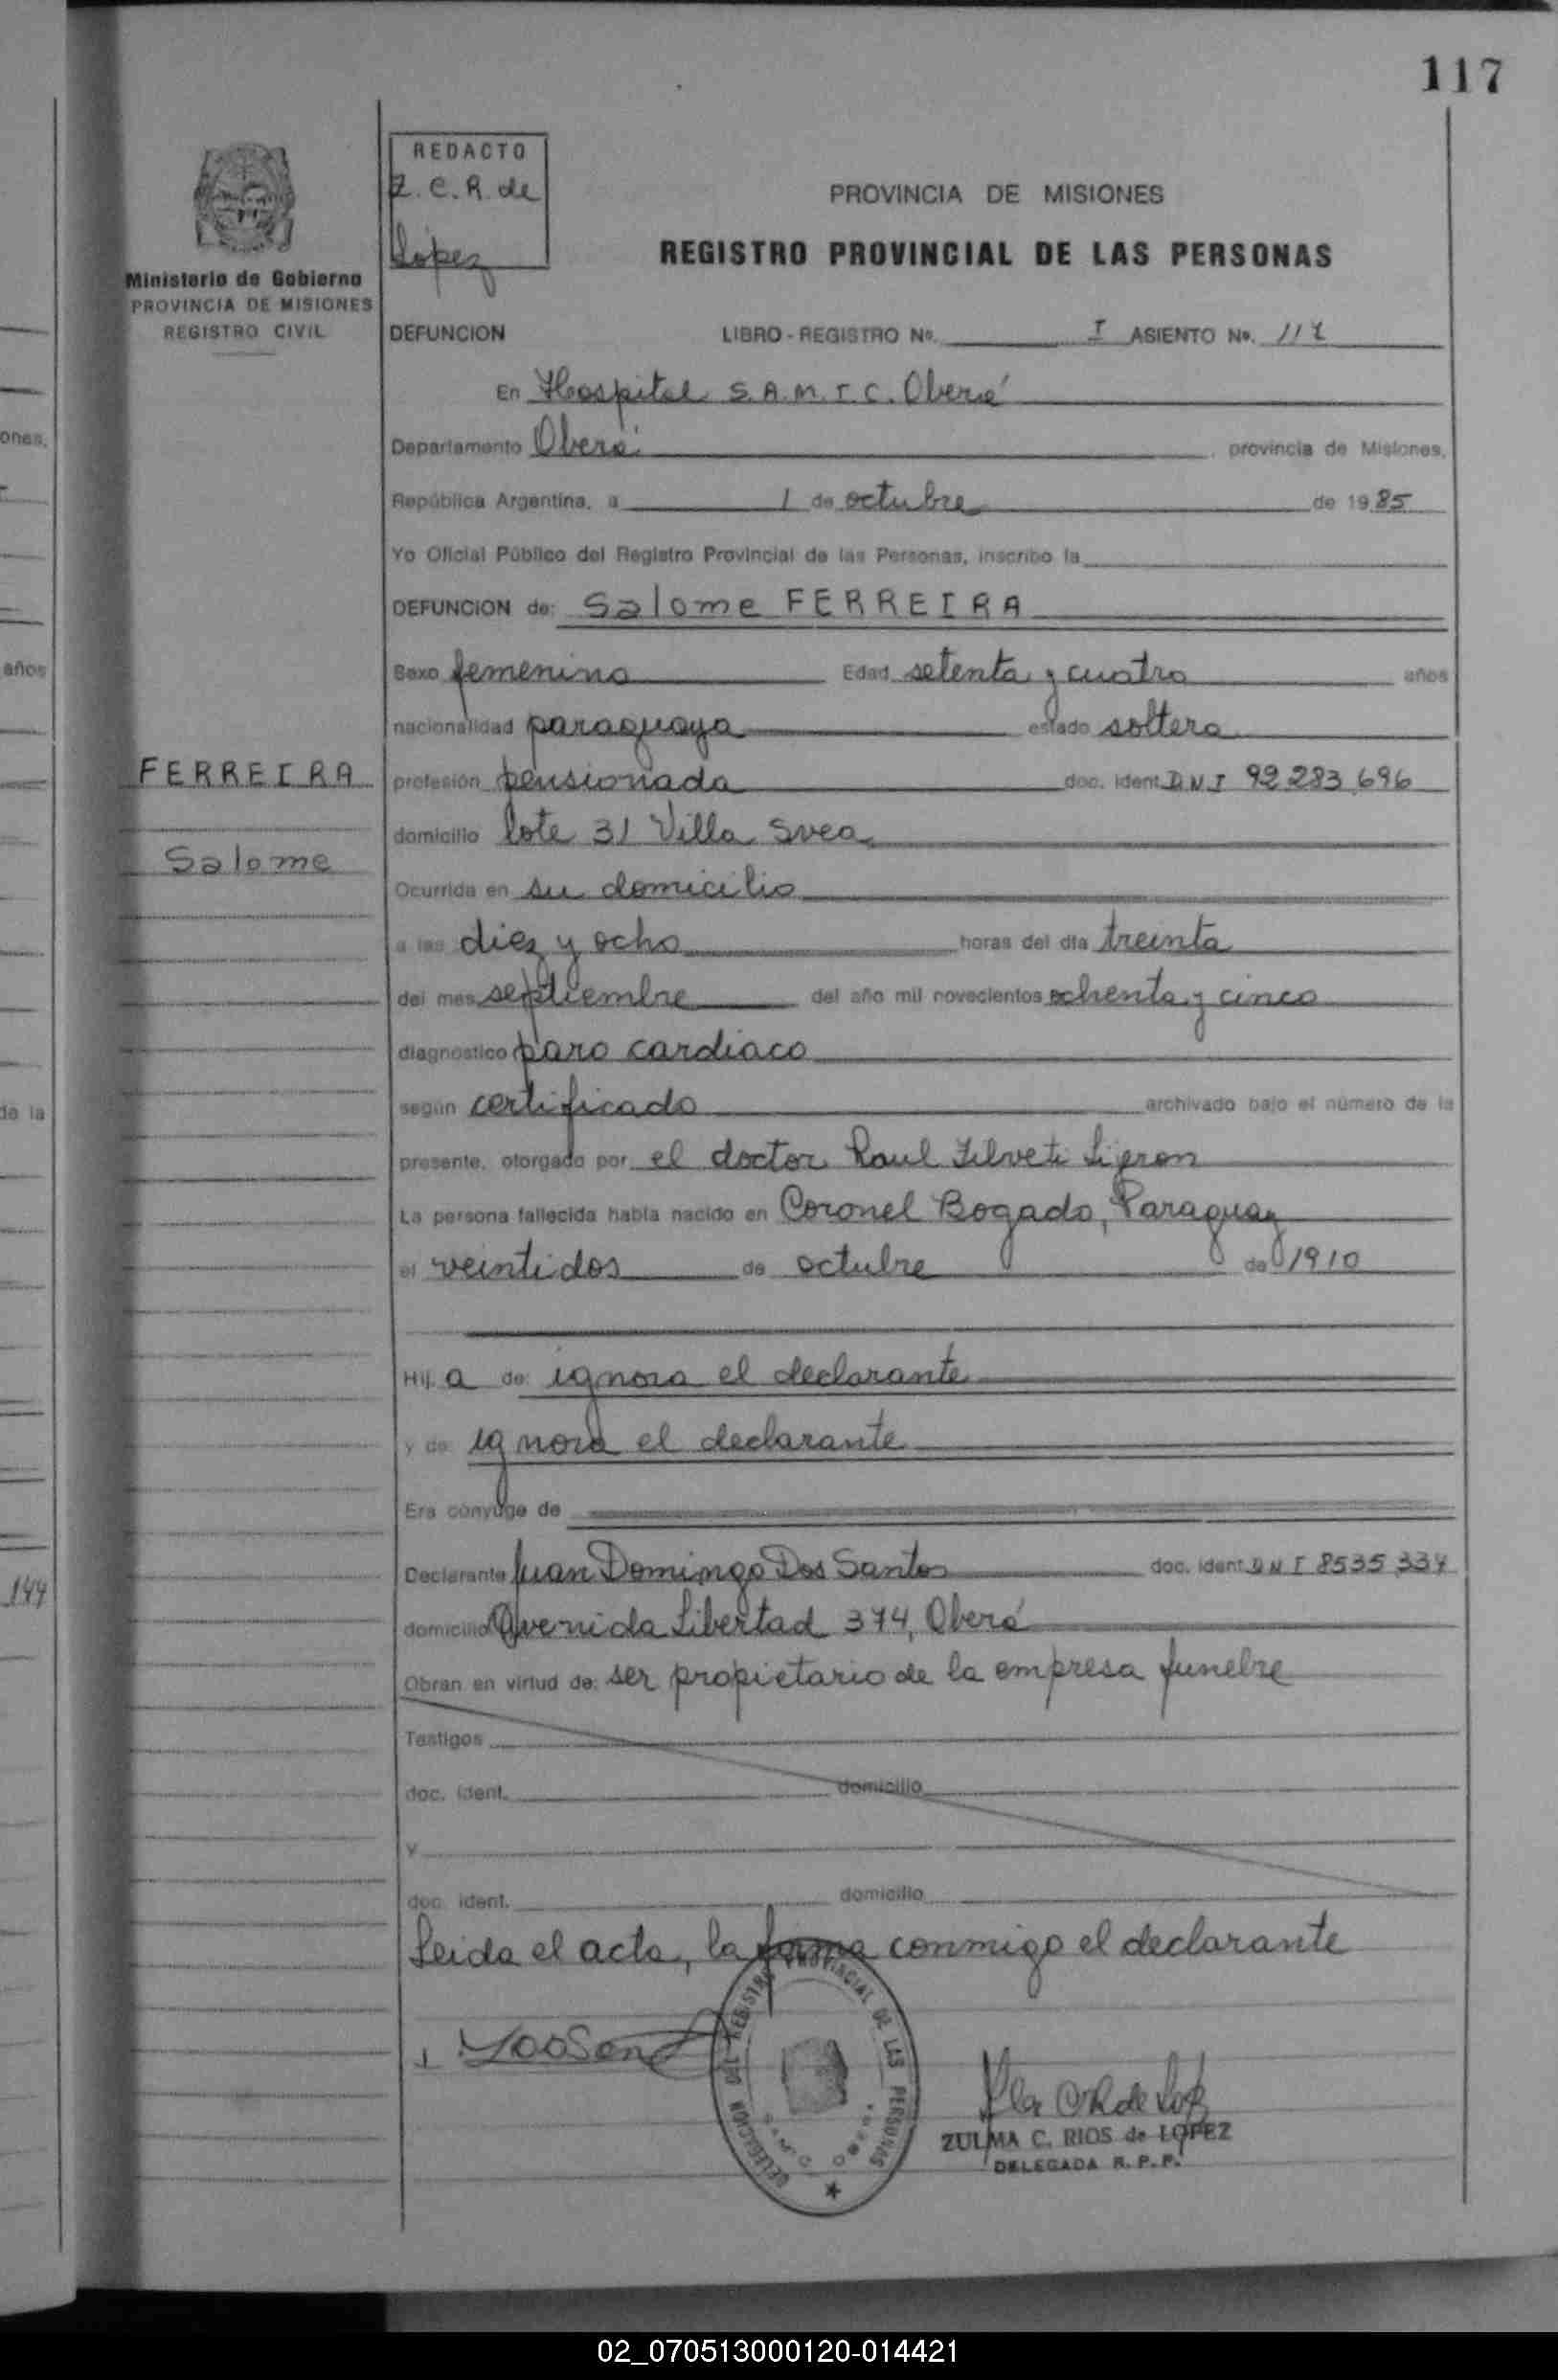 117
REDACTO
Z. C. R. de
López
PROVINCIA DE MISIONES
REGISTRO PROVINCIAL DE LAS PERSONAS
Ministerio de Gobierno
PROVINCIA DE MISIONES
REGISTRO CIVIL
DEFUNCION LIBRO - REGISTRO No. I ASIENTO No. 117
En Hospital S.A.M.I.C. Oberá
Departamento Oberá, provincia de Misiones,
República Argentina, a 1 de octubre de 1985
Yo Oficial Público del Registro Provincial de las Personas, inscribo la
DEFUNCION de: Salome FERREIRA
ones,
años
Sexo femenino Edad setenta y cuatro años
nacionalidad paraguaya estado soltera
FERREIRA
Salome
profesión pensionada doc. ident. DNI 92 283 696
domicilio lote 31 Villa Svea
Ocurrida en su domicilio
a las diez y ocho horas del día treinta
del mes septiembre del año mil novecientos ochenta y cinco
diagnóstico paro cardiaco
de la
según certificado archivado bajo el número de la
presente, otorgado por el doctor Raul
La persona fallecida había nacido en Coronel Bogado, Paraguay
el veintidos de octubre de 1910
Hij a de: ignora el declarante
y de ignora el declarante
Era cónyuge de
Declarante Juan Domingo Dos Santos doc. ident. DNI 8535 334
144
domicilio Avenida Libertad 374, Oberá
Obran en virtud de: ser propietario de la empresa funebre
Testigos
doc. ident. domicilio
y
doc. ident. domicilio
Leida el acta, la firma conmigo el declarante
DELEGACION DEL REGISTRO PROVINCIAL DE LAS PERSONAS
ZULMA C. RIOS de LOPEZ
DELEGADA R. P. P.
02_070513000120-014421